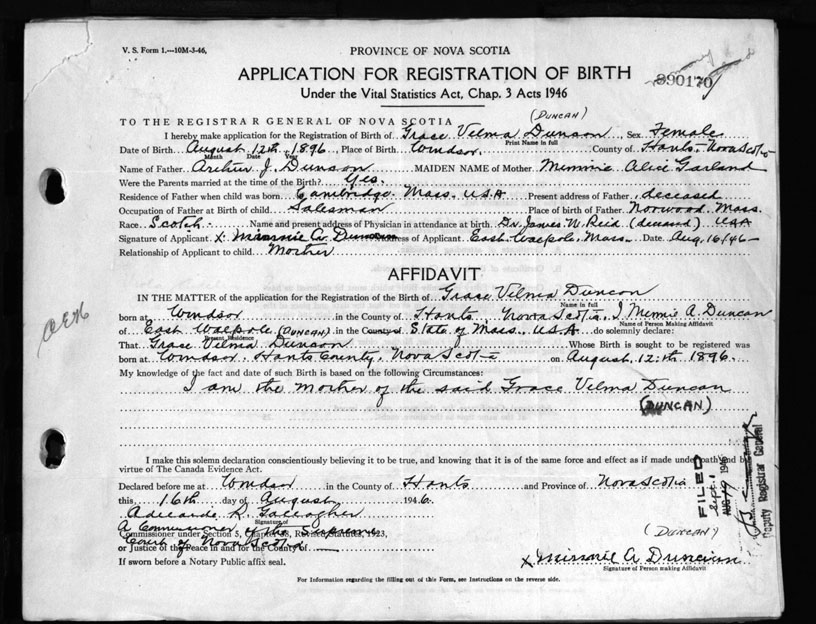 V. S. Form 1.—10M-3-46.
PROVINCE OF NOVA SCOTIA
APPLICATION FOR REGISTRATION OF BIRTH
890170
Under the Vital Statistics Act, Chap. 3 Acts 1946
(DUNCAN)
TO THE REGISTRAR GENERAL OF NOVA SCOTIA
I hereby make application for the Registration of Birth of Grace Velma Duncan, Sex Female
Print Name in full
Date of Birth August 12th 1896 Place of Birth Windsor County of Hants, Nova Scotia
Month Date Year
Name of Father Arthur J. Duncan MAIDEN NAME of Mother Minnie Alice Garland
Were the Parents married at the time of the Birth? Yes.
Residence of Father when child was born Cambridge Mass. USA Present address of Father deceased
Occupation of Father at Birth of child Salesman Place of birth of Father Norwood, Mass. USA
Race Scotch Name and present address of Physician in attendance at birth Dr. James W. Reid (deceased)
Signature of Applicant X Minnie A. Duncan Address of Applicant East Walpole, Mass. Date Aug. 16/46
Relationship of Applicant to child Mother
AFFIDAVIT
IN THE MATTER of the application for the Registration of the Birth of Grace Velma Duncan
Name in full
born at Windsor in the County of Hants, Nova Scotia, I Minnie A. Duncan
Name of Person Making Affidavit
of East Walpole (DUNCAN) in the County of State of Mass., USA do solemnly declare:
Present Residence
That Grace Velma Duncan Whose Birth is sought to be registered was
born at Windsor, Hants County, Nova Scotia on August 12:th 1896.
My knowledge of the fact and date of such Birth is based on the following Circumstances:
I am the Mother of the said Grace Velma Duncan
(DUNCAN)
I make this solemn declaration conscientiously believing it to be true, and knowing that it is of the same force and effect as if made under oath and by
virtue of The Canada Evidence Act.
Declared before me at Windsor in the County of Hants and Province of Nova Scotia
this 16th day of August 1946.
Adelaide R. Gallagher
Signature of
A Commissioner of the Supreme
Commissioner under Section 5, Chapter 38, Revised Statutes, 1923,
Court of Nova Scotia
or Justice of the Peace in and for the County of
(DUNCAN)
X Minnie A Duncan
If sworn before a Notary Public affix seal.
Signature of Person making Affidavit
For Information regarding the filling out of this Form, see Instructions on the reverse side.
FILED
Sept. 1
1946
Deputy Registrar General